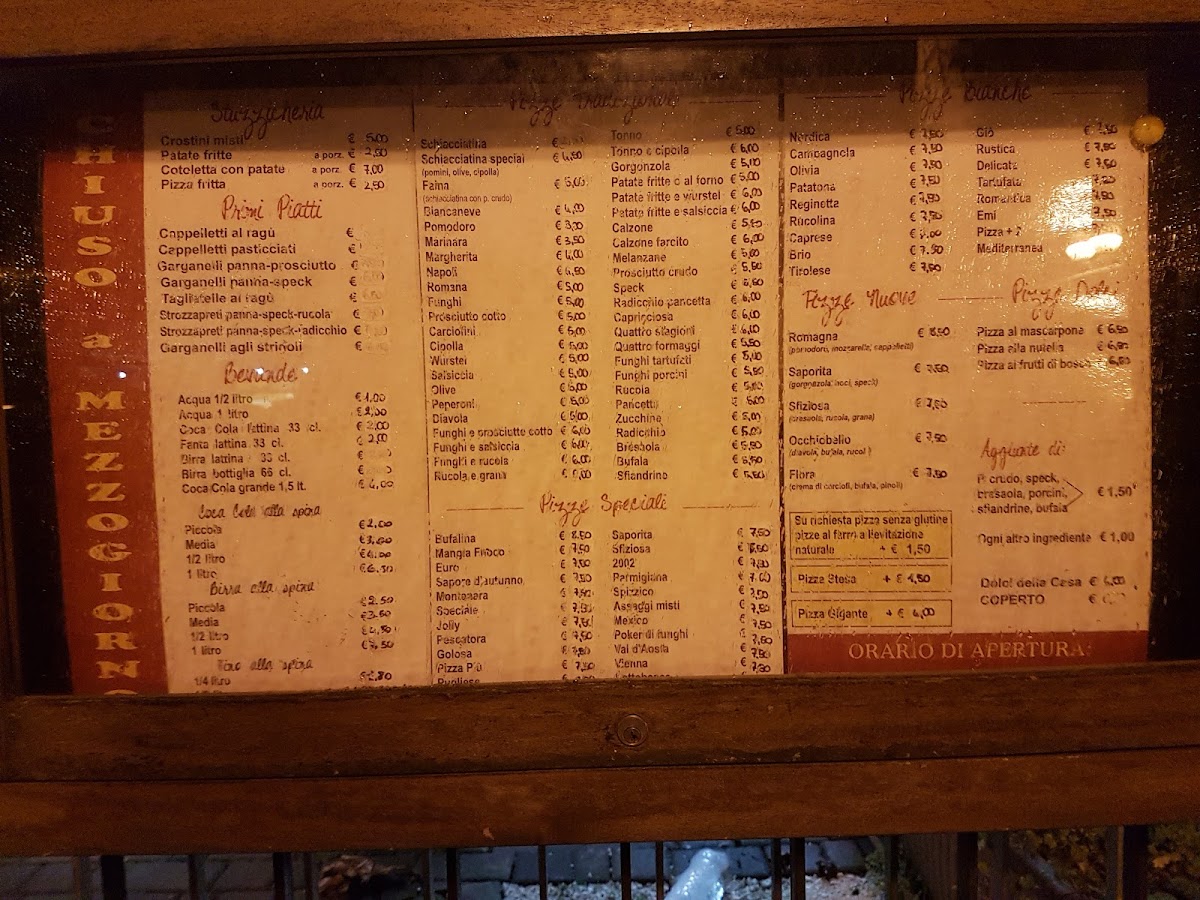 CHIUSO a MEZZOGIORNO
Stuzzicheria
Crostini misti € 5,00
Patate fritte a porz. € 2,50
Cotoletta con patate a porz. € 7,00
Pizza fritta a porz. € 2,50
Primi Piatti
Cappelletti al ragù €
Cappelletti pasticciati €
Garganelli panna-prosciutto €
Garganelli panna-speck €
Tagliatelle al ragù €
Strozzapreti panna-speck-rucola €
Strozzapreti panna-speck-radicchio €
Garganelli agli stridoli €
Bevande
Acqua 1/2 litro € 1,00
Acqua 1 litro € 2,00
Coca Cola lattina 33 cl. € 2,00
Fanta lattina 33 cl. € 2,00
Birra lattina 33 cl. €
Birra bottiglia 66 cl. €
Coca Cola grande 1,5 lt. € 4,00
Coca Cola alla spina
Piccola € 2,00
Media € 3,60
1/2 litro € 4,00
1 litro
Birra alla spina
Piccola € 2,50
Media € 3,60
1/2 litro € 4,50
1 litro € 7,50
Vino alla spina
1/4 litro
Pizze Tradizionali
Schiacciatina €
Schiacciatina special € 4,50
(pomini, olive, cipolla)
Faina € 5,00
(schiacciatina con p. crudo)
Biancaneve € 4,00
Pomodoro € 3,00
Marinara € 3,50
Margherita € 4,00
Napoli € 4,50
Romana € 5,00
Funghi € 5,00
Prosciutto cotto € 5,00
Carciofini € 5,00
Cipolla € 5,00
Wurstel € 5,00
Salsiccia € 5,00
Olive € 5,00
Peperoni € 5,00
Diavola € 5,00
Funghi e prosciutto cotto € 6,00
Funghi e salsiccia € 6,00
Funghi e rucola € 6,00
Rucola e grana €
Tonno € 5,00
Tonno e cipolla € 6,00
Gorgonzola € 5,00
Patate fritte o al forno € 5,00
Patate fritte e wurstel € 6,00
Patate fritte e salsiccia € 6,00
Calzone € 5,50
Calzone farcito € 6,00
Melanzane € 5,00
Prosciutto crudo € 5,50
Speck € 5,50
Radicchio pancetta € 6,00
Capricciosa € 6,00
Quattro stagioni € 6,00
Quattro formaggi € 5,50
Funghi tartufati €
Funghi porcini € 5,50
Rucola €
Pancetta € 5,00
Zucchine € 5,00
Radicchio € 5,00
Bresaola € 5,50
Bufala € 5,50
Sfiandrino € 5,50
Pizze Speciali
Bufalina € 8,50
Mangia Fuoco € 7,50
Euro € 7,50
Sapore d'autunno € 7,50
Montenera € 7,50
Speciale €
Jolly € 7,50
Pescatora € 7,50
Golosa € 7,50
Pizza Più € 7,50
Pugliese
Saporita € 7,50
Sfiziosa € 7,50
2002 € 7,50
Parmigiana € 7,00
Spizzico € 7,50
Assaggi misti € 7,50
Mexico € 7,50
Poker di funghi € 7,50
Val d'Aosta € 7,50
Vienna € 7,50
Pizze Bianche
Nordica € 7,50
Campagnola € 7,50
Olivia € 7,50
Patatona € 7,50
Reginetta € 7,50
Rucolina € 7,50
Caprese
Brio € 7.50
Tirolese € 7,50
Giò € 7,50
Rustica € 7,50
Delicata € 7,50
Tartufata 7,50
Romantica 7,50
Emi 7,50
Pizza +
Mediterranea
Pizze Nuove
Romagna € 8,50
(pomodoro, mozzarella, cappelletti)
Saporita € 7,50
(gorgonzola, noci, speck)
Sfiziosa € 7,50
(bresaola, rucola, grana)
Occhiobello € 7,50
(diavola, bufala, rucola)
Flora € 7,50
(crema di carciofi, bufala, pinoli)
Pizze Dolci
Pizza al mascarpone € 6,50
Pizza alla nutella € 6,50
Pizza ai frutti di bosco 6,50
Su richiesta pizza senza glutine
pizze al farro a lievitazione
naturale + € 1,50
Pizza Stesa + € 1,50
Pizza Gigante + € 4,00
Aggiunte di:
P. crudo, speck,
bresaola, porcini,
sfiandrino, bufala € 1,50
Ogni altro ingrediente € 1,00
Dolci della Casa € 4,00
COPERTO €
ORARIO DI APERTURA: